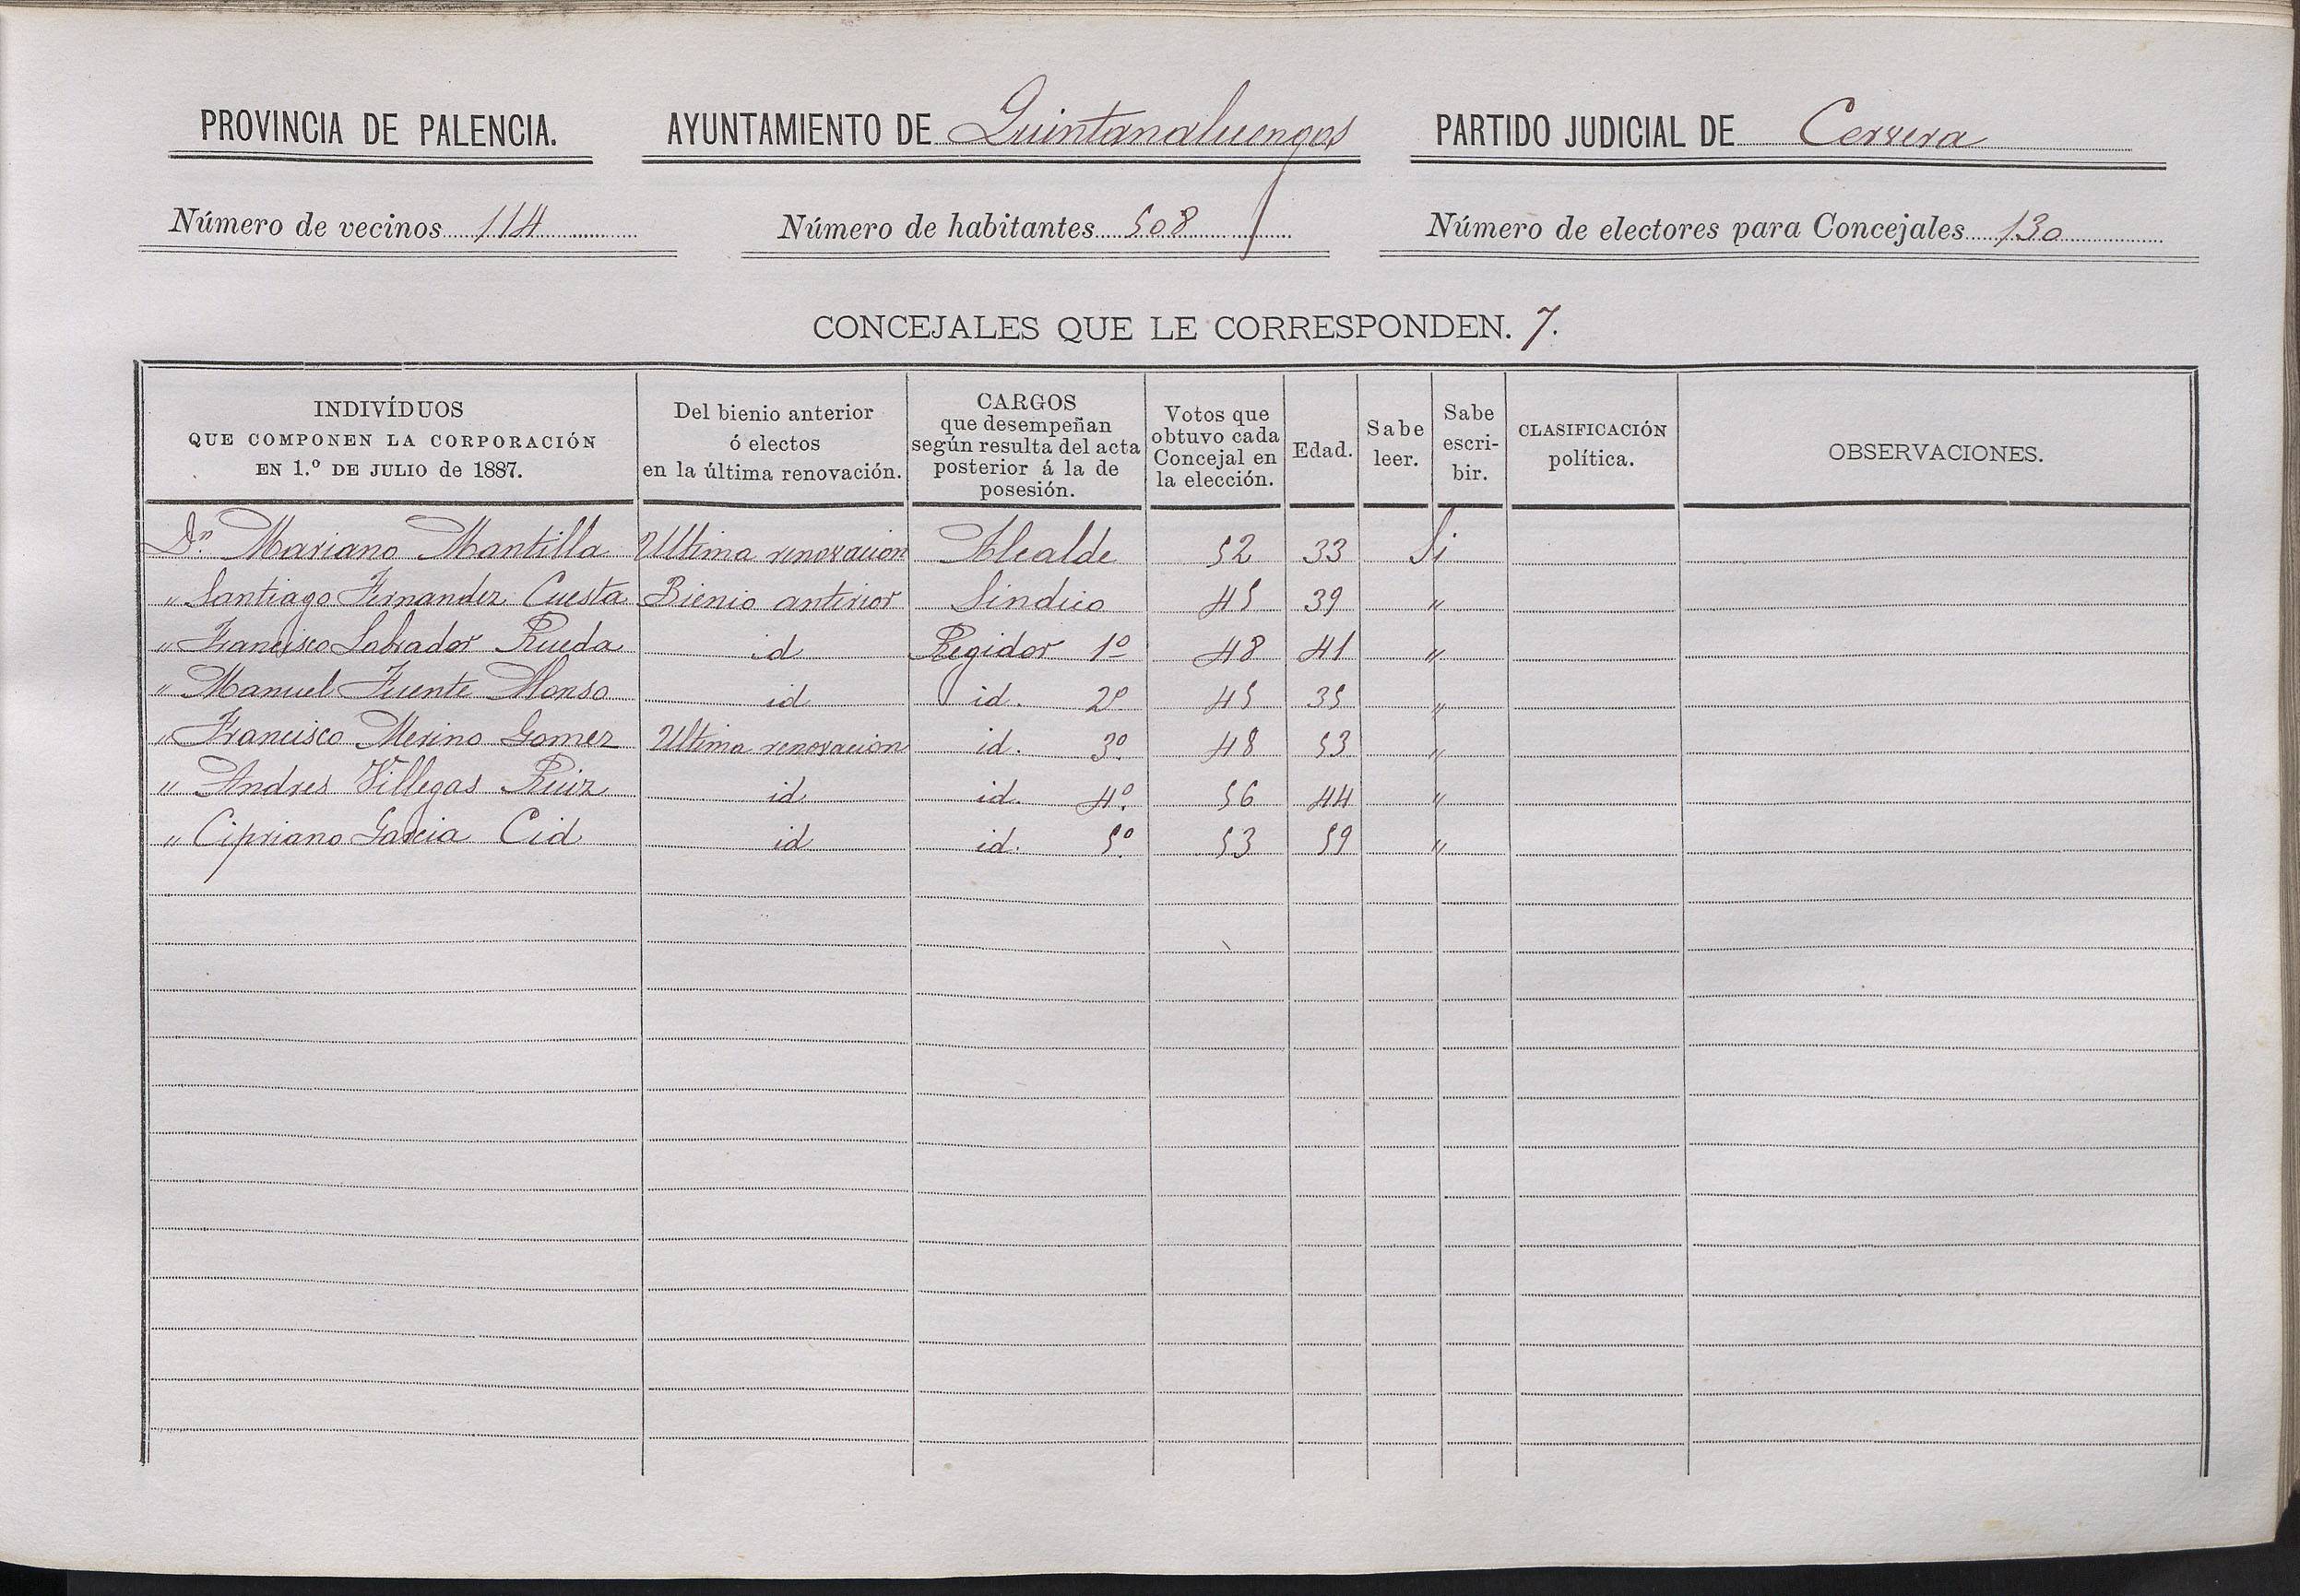 PROVINCIA DE PALENCIA. AYUNTAMIENTO DE Quintanaluengos PARTIDO JUDICIAL DE Cervera
Número de vecinos 114 Número de habitantes 508 Número de electores para Concejales 130
CONCEJALES QUE LE CORRESPONDEN. 7.
INDIVÍDUOS
QUE COMPONEN LA CORPORACIÓN
EN 1.º DE JULIO de 1887.
Del bienio anterior
ó electos
en la última renovación.
CARGOS
que desempeñan
según resulta del acta
posterior á la de
posesión.
Votos que
obtuvo cada
Concejal en
la elección.
Edad.
Sabe
leer.
Sabe
escri-
bir.
CLASIFICACIÓN
política.
OBSERVACIONES.
Dn. Mariano Mantilla Ultima renovacion Alcalde 52 33 Si
" Santiago Fernandez Cuesta Bienio anterior Sindico 45 39 "
" Francisco Labrador Rueda id Regidor 1º 48 41 "
" Manuel Fuente Alonso id id. 2º 45 35 "
" Francisco Merino Gomez Ultima renovacion id. 3º 48 53 "
" Andres Villegas Ruiz id id. 4º 56 44 "
" Cipriano Garcia Cid id id. 5º 53 59 "